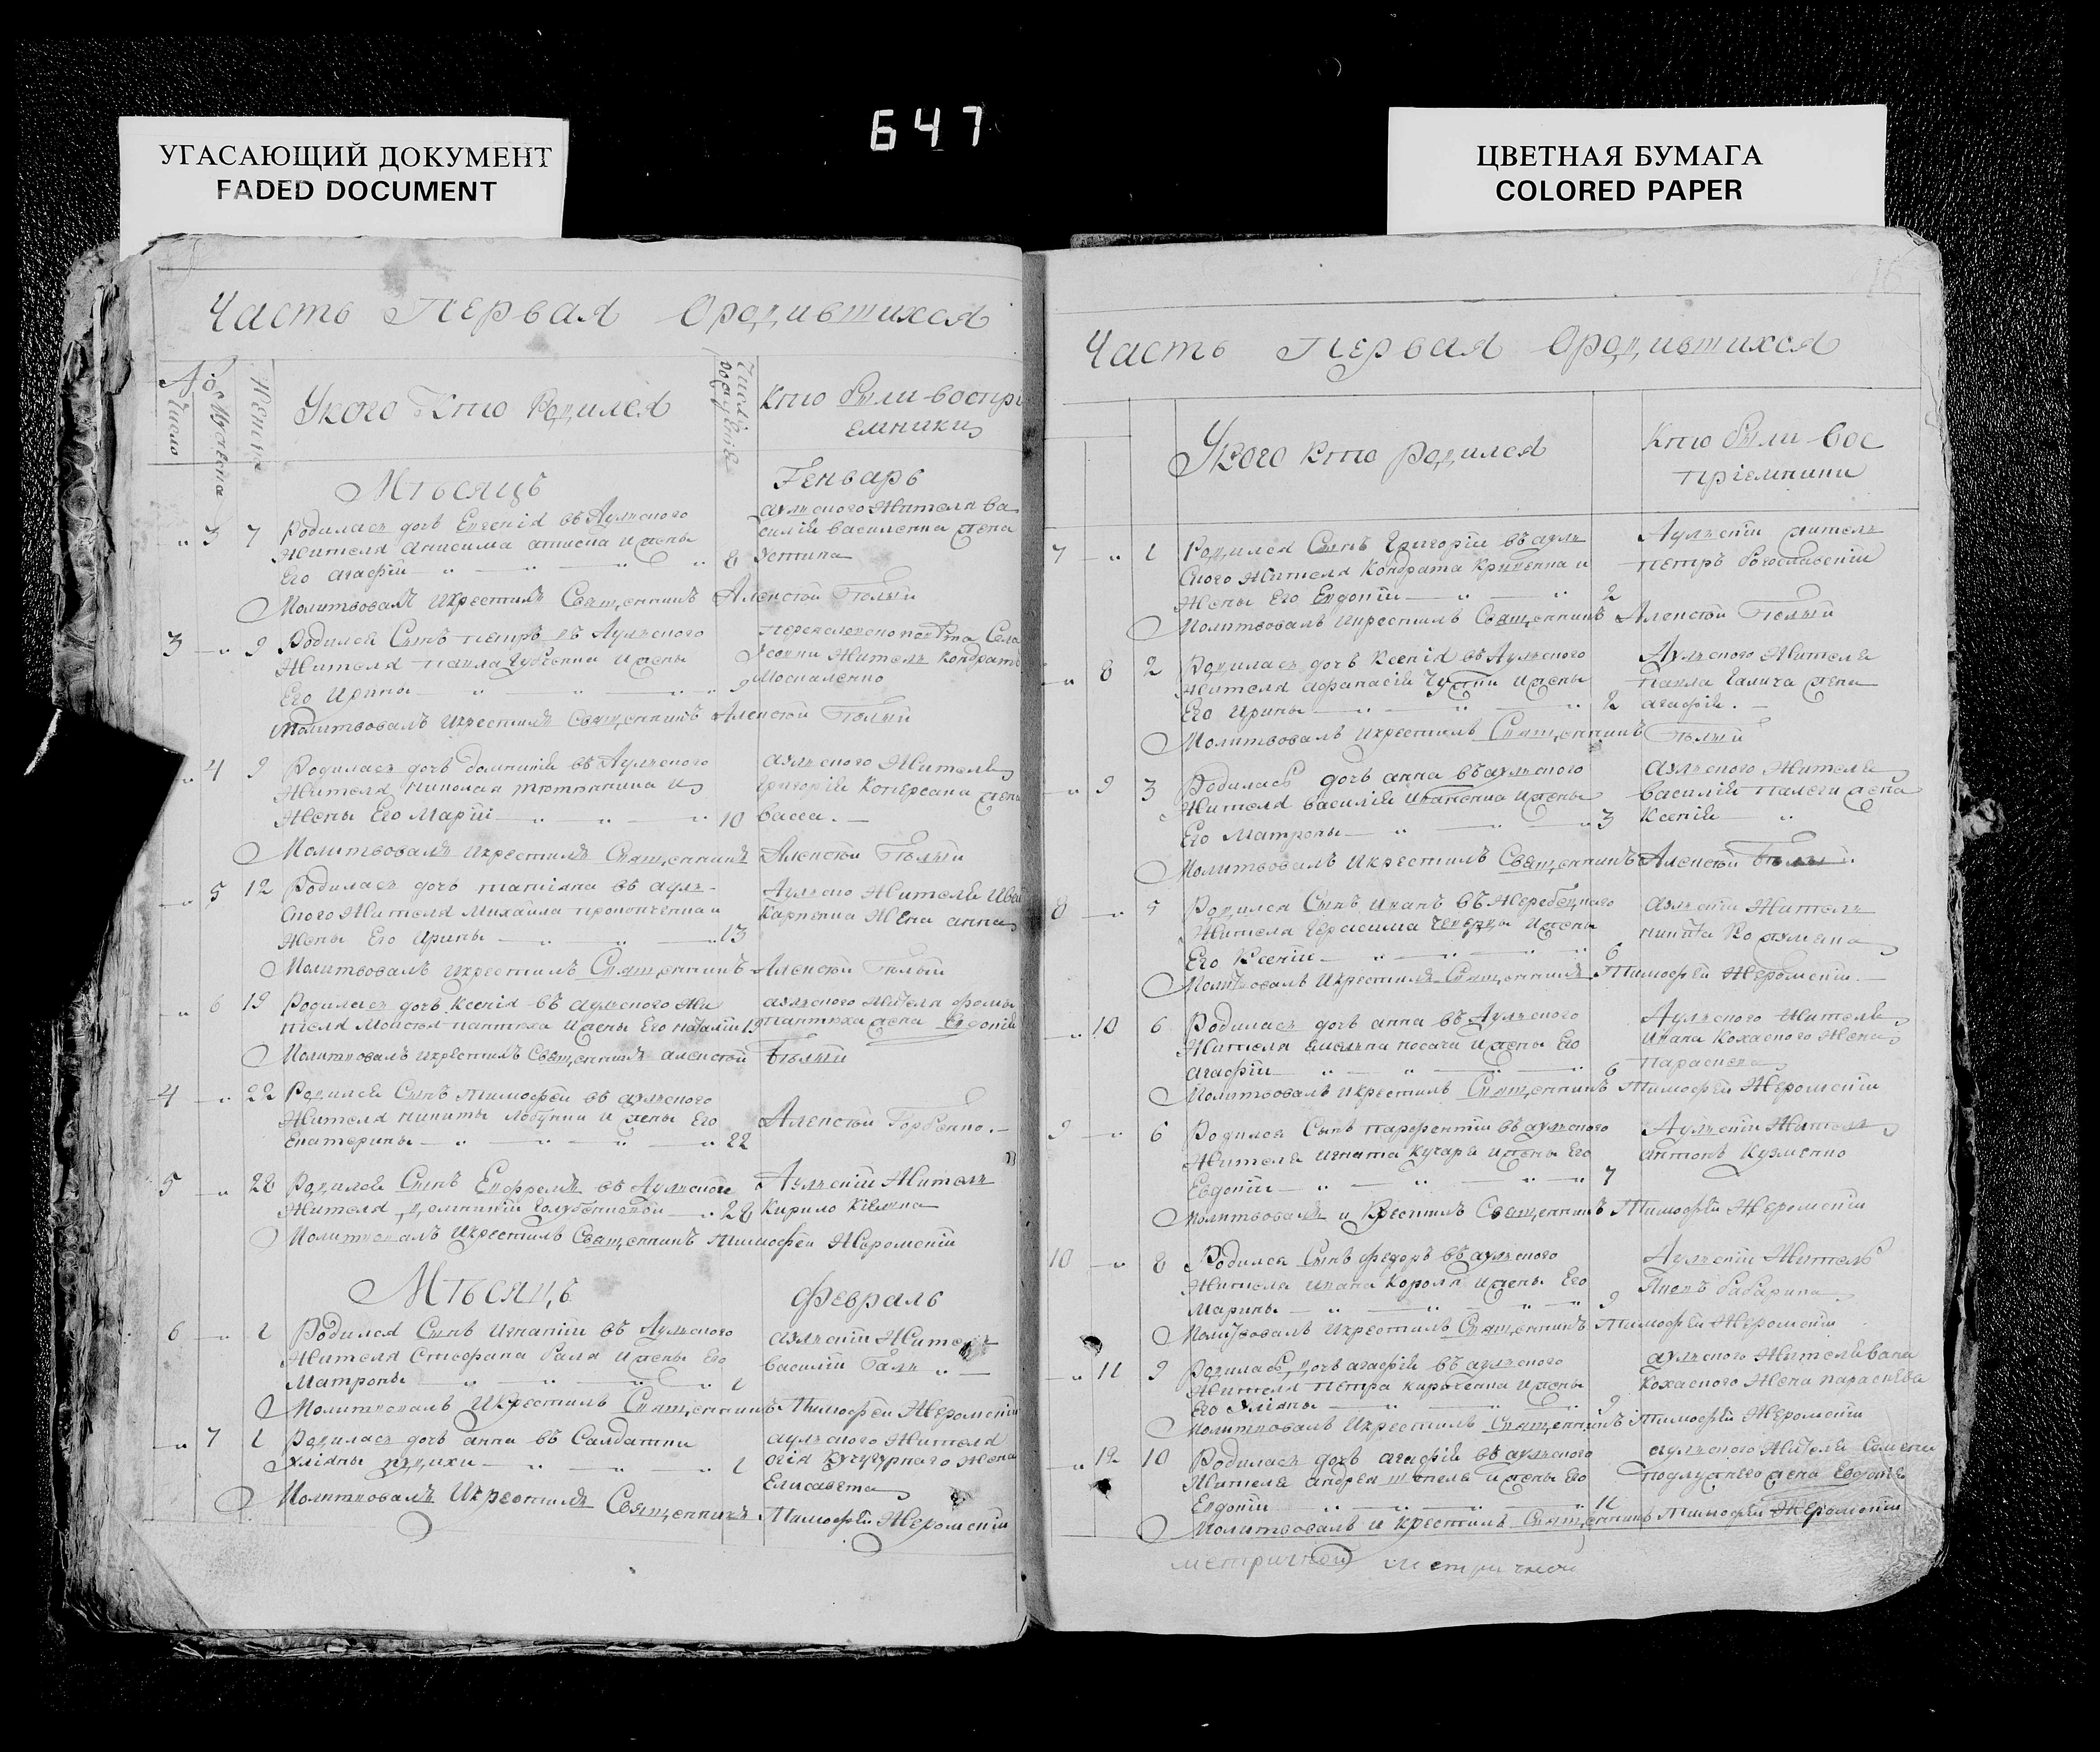 647
УГАСАЮЩИЙ ДОКУМЕНТ
FADED DOCUMENT
ЦВЕТНАЯ БУМАГА
COLORED PAPER
Часть Первая Ородившихся
Укого Кто Родился
Кто были воспрі
емники
Мѣсяцъ Генварь
3 7 Родилась дочь Евгенія въ Аульского
Жителя Анисима и жены
Его Агафіи 8
аульского Жителя Ва
силія Василенка жена
Устина
Молитвовалъ икрестилъ Священникъ Алексѣй Бѣлый
3 9 Родился Сынъ Петръ въ Аульского
Жителя Павла Губенка и жены
Его Ирины 9
Села
Жителъ Кондратъ
Москаленко
Молитвовалъ икрестилъ Священникъ Алексѣй Бѣлый
4 9 Родилась дочь Домникія въ Аульского
Жителя Николая и
Жены Его Маріи 10
аульского Жителя
Григорія жена
Васса
Молитвовалъ икрестилъ Священникъ Алексѣй Бѣлый
5 12 Родилась дочь Татіяна въ ауль-
ского Жителя Михаила Прокопченка и
жены Его Ирины 13
Аульско Жителя Ива
Карпенка Жена Анна
Молитвовалъ икрестилъ Священникъ Алексѣй Бѣлый
6 19 Родилась дочь Ксенія въ аульского Жи
теля Моисея Пантюха и жены Его Наталіи 19
аульского Жителя Фомы
Пантюха жена Евдокія
Молитвовалъ икрестилъ Священникъ Алексѣй Бѣлый
4 22 Родился Сынъ Тимофей въ аульского
Жителя Никиты и жены Его
Екатерины 22
Алексѣй Горбенко
5 28 Родился Сынъ Ефремъ въ Аульского
Жителя 28
Аульскій Житель
Кирило
Молитвовалъ икрестилъ Священникъ Тимофей Жеромскій
Мѣсяцъ Февраль
6 1 Родился Сынъ Игнатій въ Аульского
Жителя Стефана Галя и жены Его
Матроны 1
аульскій Житель
Василій Галь
Молитвовалъ икрестилъ Священникъ Тимофей Жеромскій
7 1 Родилась дочь Анна въ Салдатки
Уліяны 1
аульского Жителя
Кучугурнаго жена
Елисавета
Молитвовалъ икрестилъ Священникъ Тимофей Жеромскій
16
Часть Первая Ородившихся
Укого кто родился
Кто были вос
пріемники
7 1 Родился Сынъ Григорій въ ауль
ского Жителя Кондрата Кривенка и
жены Его Евдокіи 2
Аульскій житель
Петръ Богославскій
Молитвовалъ икрестилъ Священникъ Алексѣй Бѣлый
8 2 Родилась дочь Ксенія въ Аульского
жителя Афанасія и жены
Его Ирины 2
Аульского Жителя
Павла Галича жена
Агафія
Молитвовалъ икрестилъ Священникъ Бѣлый
9 3 Родилась дочь Анна въ аульского
Жителя Василія Иваненка и жены
Его Матроны 3
аульского Жителя
Василія жена
Ксенія
Молитвовалъ икрестилъ Священникъ Алексѣй Бѣлый
8 5 Родился Сынъ Иванъ въ
Жителя Герасима и жены
Его Ксеніи 6
аульскій Житель
Никита
Молитвовалъ икрестилъ Священникъ Тимофей Жеромскій
10 6 Родилась дочь Анна въ Аульского
Жителя Емельяна Носача и жены Его
Агафіи 6
Аульского Жителя
Ивана Кохаского Жена
Параскева
Молитвовалъ икрестилъ Священникъ Тимофей Жеромскій
9 6 Родился Сынъ Парфентій въ аульского
Жителя Игната Кухаря и жены Его
Евдокіи 7
Аульскій Житель
Антонъ Кузменко
Молитвовалъ и Крестилъ Священникъ Тимофей Жеромскій
10 8 Родился Сынъ Федоръ въ аульского
Жителя Ивана Короля и жены Его
Марины 9
Аульскій Житель
Молитвовалъ икрестилъ Священникъ Тимофей Жеромскій
11 9 Родилась дочь Агафія въ аульского
Жителя Петра Кириченка и жены
Его Уліяны 9
аульского Жителя Ивана
Кохаского Жена Параскева
Молитвовалъ икрестилъ Священникъ Тимофей Жеромскій
12 10 Родилась дочь Агафія въ аульского
Жителя Андрея и жены Его
Евдокіи 11
аульского Жителя Семена
жена Евдокія
Молитвовалъ и крестилъ Священникъ Тимофей Жеромскій
метричной метричной